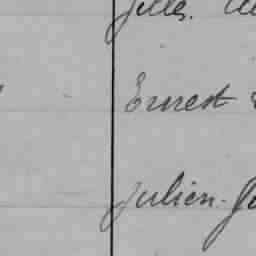 Gilles.
Ernest
Julien-